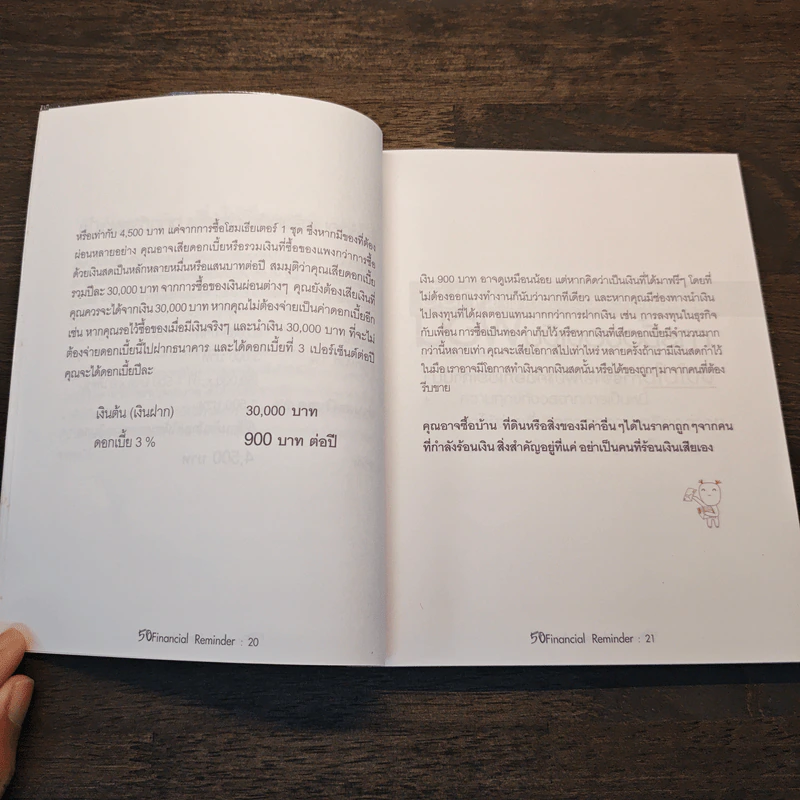 หรือเท่ากับ 4,500 บาท แค่จากการซื้อโฮมเธียเตอร์ 1 ชุด ซึ่งหากมีของที่ต้อง
ผ่อนหลายอย่าง คุณอาจเสียดอกเบี้ยหรือรวมเงินที่ซื้อของแพงกว่าการซื้อ
ด้วยเงินสดเป็นหลักหลายหมื่นหรือแสนบาทต่อปี สมมุติว่าคุณเสียดอกเบี้ย
รวมปีละ 30,000 บาท จากการซื้อของเงินผ่อนต่างๆ คุณยังต้องเสียเงินที่
คุณควรจะได้จากเงิน 30,000 บาท หากคุณไม่ต้องจ่ายเป็นค่าดอกเบี้ยอีก
เช่น หากคุณรอไว้ซื้อของเมื่อมีเงินจริงๆ และนำเงิน 30,000 บาท ที่จะไม่
ต้องจ่ายดอกเบี้ยนี้ไปฝากธนาคาร และได้ดอกเบี้ยที่ 3 เปอร์เซ็นต์ต่อปี
คุณจะได้ดอกเบี้ยปีละ
เงินต้น (เงินฝาก) 30,000 บาท
ดอกเบี้ย 3 % 900 บาท ต่อปี
50Financial Reminder : 20
เงิน 900 บาท อาจดูเหมือนน้อย แต่หากคิดว่าเป็นเงินที่ได้มาฟรีๆ โดยที่
ไม่ต้องออกแรงทำงานก็นับว่ามากทีเดียว และหากคุณมีช่องทางนำเงิน
ไปลงทุนที่ได้ผลตอบแทนมากกว่าการฝากเงิน เช่น การลงทุนในธุรกิจ
กับเพื่อน การซื้อเป็นทองคำเก็บไว้ หรือหากเงินที่เสียดอกเบี้ยมีจำนวนมาก
กว่านี้หลายเท่า คุณจะเสียโอกาสไปเท่าไหร่ หลายครั้งถ้าเรามีเงินสดกำไว้
ในมือ เราอาจมีโอกาสทำเงินจากเงินสดนั้น หรือได้ของถูกๆ มาจากคนที่ต้อง
รีบขาย
คุณอาจซื้อบ้าน ที่ดินหรือสิ่งของมีค่าอื่นๆ ได้ในราคาถูกๆ จากคน
ที่กำลังร้อนเงิน สิ่งสำคัญอยู่ที่แค่ อย่าเป็นคนที่ร้อนเงินเสียเอง
50Financial Reminder : 21